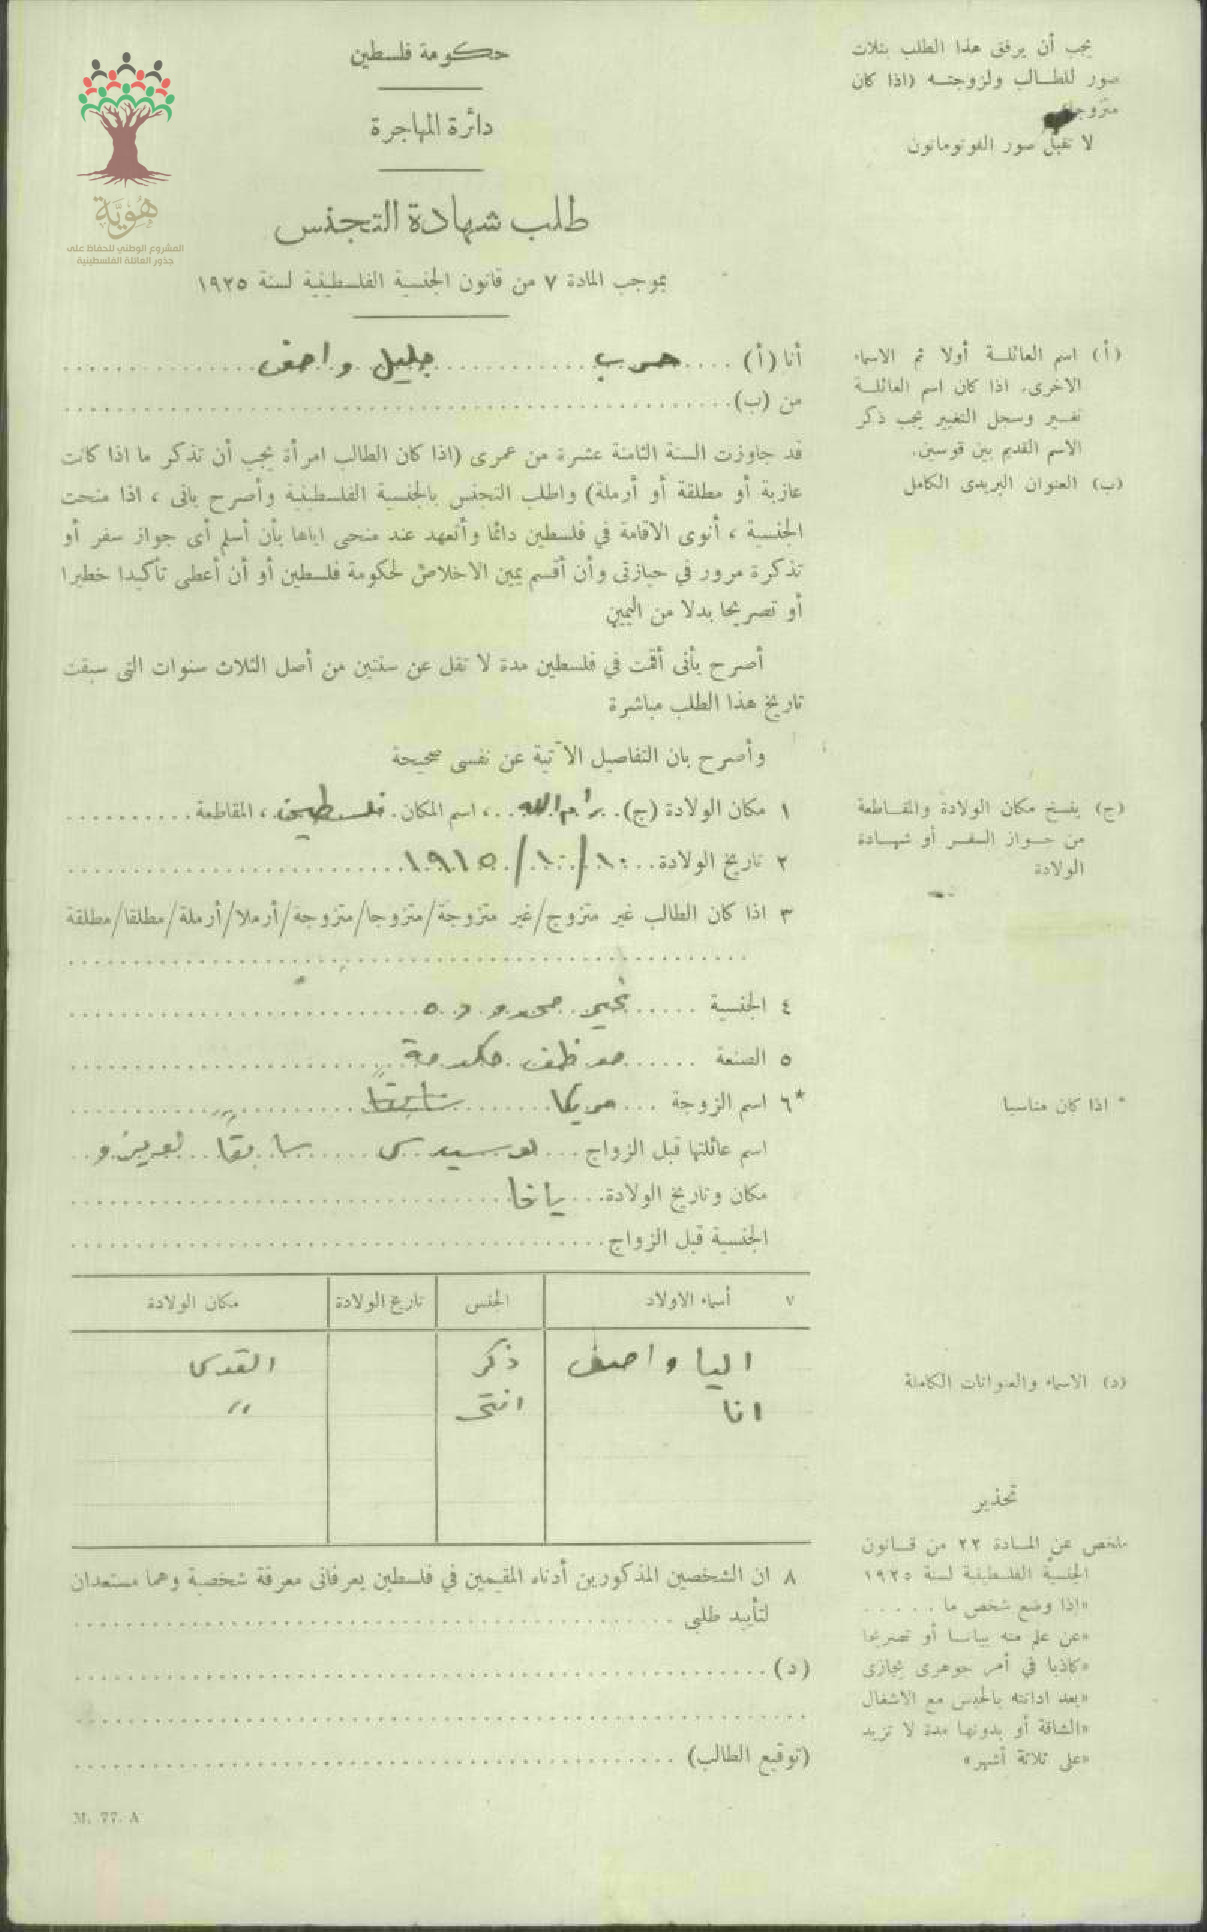 حكومة فلسطين
دائرة المهاجرة
طلب شهادة التجنس
بموجب المادة ٧ من قانون الجنسية الفلسطينية لسنة ١٩٢٥
هُوِيَّة
المشروع الوطني للحفاظ على
جذور العائلة الفلسطينية
يجب أن يرفق هذا الطلب بثلاث
صور للطالب ولزوجته (اذا كان
متزوجا)
لا تقبل صور الفوتوماتون
أنا (أ) حرب جليل واصف
من (ب)
(أ) اسم العائلة أولا ثم الاسماء
الاخرى. اذا كان اسم العائلة
تغير وسجل التغيير يجب ذكر
الاسم القديم بين قوسين.
(ب) العنوان البريدى الكامل
قد جاوزت السنة الثامنة عشرة من عمرى (اذا كان الطالب امرأة يجب أن تذكر ما اذا كانت
عازبة أو مطلقة أو أرملة) واطلب التجنس بالجنسية الفلسطينية وأصرح بانى ، اذا منحت
الجنسية ، أنوى الاقامة في فلسطين دائما وأتعهد عند منحى اياها بأن أسلم أى جواز سفر أو
تذكرة مرور في حيازتى وأن أقسم يمين الاخلاص لحكومة فلسطين أو أن أعطى تأكيدا خطيرا
أو تصريحا بدلا من اليمين
أصرح بأنى أقمت في فلسطين مدة لا تقل عن سنتين من أصل الثلاث سنوات التى سبقت
تاريخ هذا الطلب مباشرة
وأصرح بان التفاصيل الآتية عن نفسى صحيحة
١ مكان الولادة (ج) رام الله ، اسم المكان فلسطين ، المقاطعة
(ج) ينسخ مكان الولادة والمقاطعة
من جواز السفر أو شهادة
الولادة
٢ تاريخ الولادة ١٠/١٠/١٩١٥
٣ اذا كان الطالب غير متزوج/غير متزوجة/متزوجا/متزوجة/أرملا/أرملة/مطلقا/مطلقة
٤ الجنسية غير محدودة
٥ الصنعة موظف حكومة
*٦ اسم الزوجة ماريكا سابقاً
* اذا كان مناسبا
اسم عائلتها قبل الزواج سابقاً
مكان وتاريخ الولادة يافا
الجنسية قبل الزواج
٧ أسماء الاولاد الجنس تاريخ الولادة مكان الولادة
اليا واصف ذكر القدس
انا انثى "
(د) الاسماء والعنوانات الكاملة
٨ ان الشخصين المذكورين أدناه المقيمين في فلسطين يعرفانى معرفة شخصية وهما مستعدان
لتأييد طلبى
(د)
(توقيع الطالب)
تحذير
ملخص عن المادة ٢٢ من قانون
الجنسية الفلسطينية لسنة ١٩٢٥
«اذا وضع شخص ما .....
«عن علم منه بيانا أو تصريحا
«كاذبا في أمر جوهرى يجازى
«بعد ادانته بالحبس مع الاشغال
«الشاقة أو بدونها مدة لا تزيد
«على ثلاثة أشهر»
M. 77. A